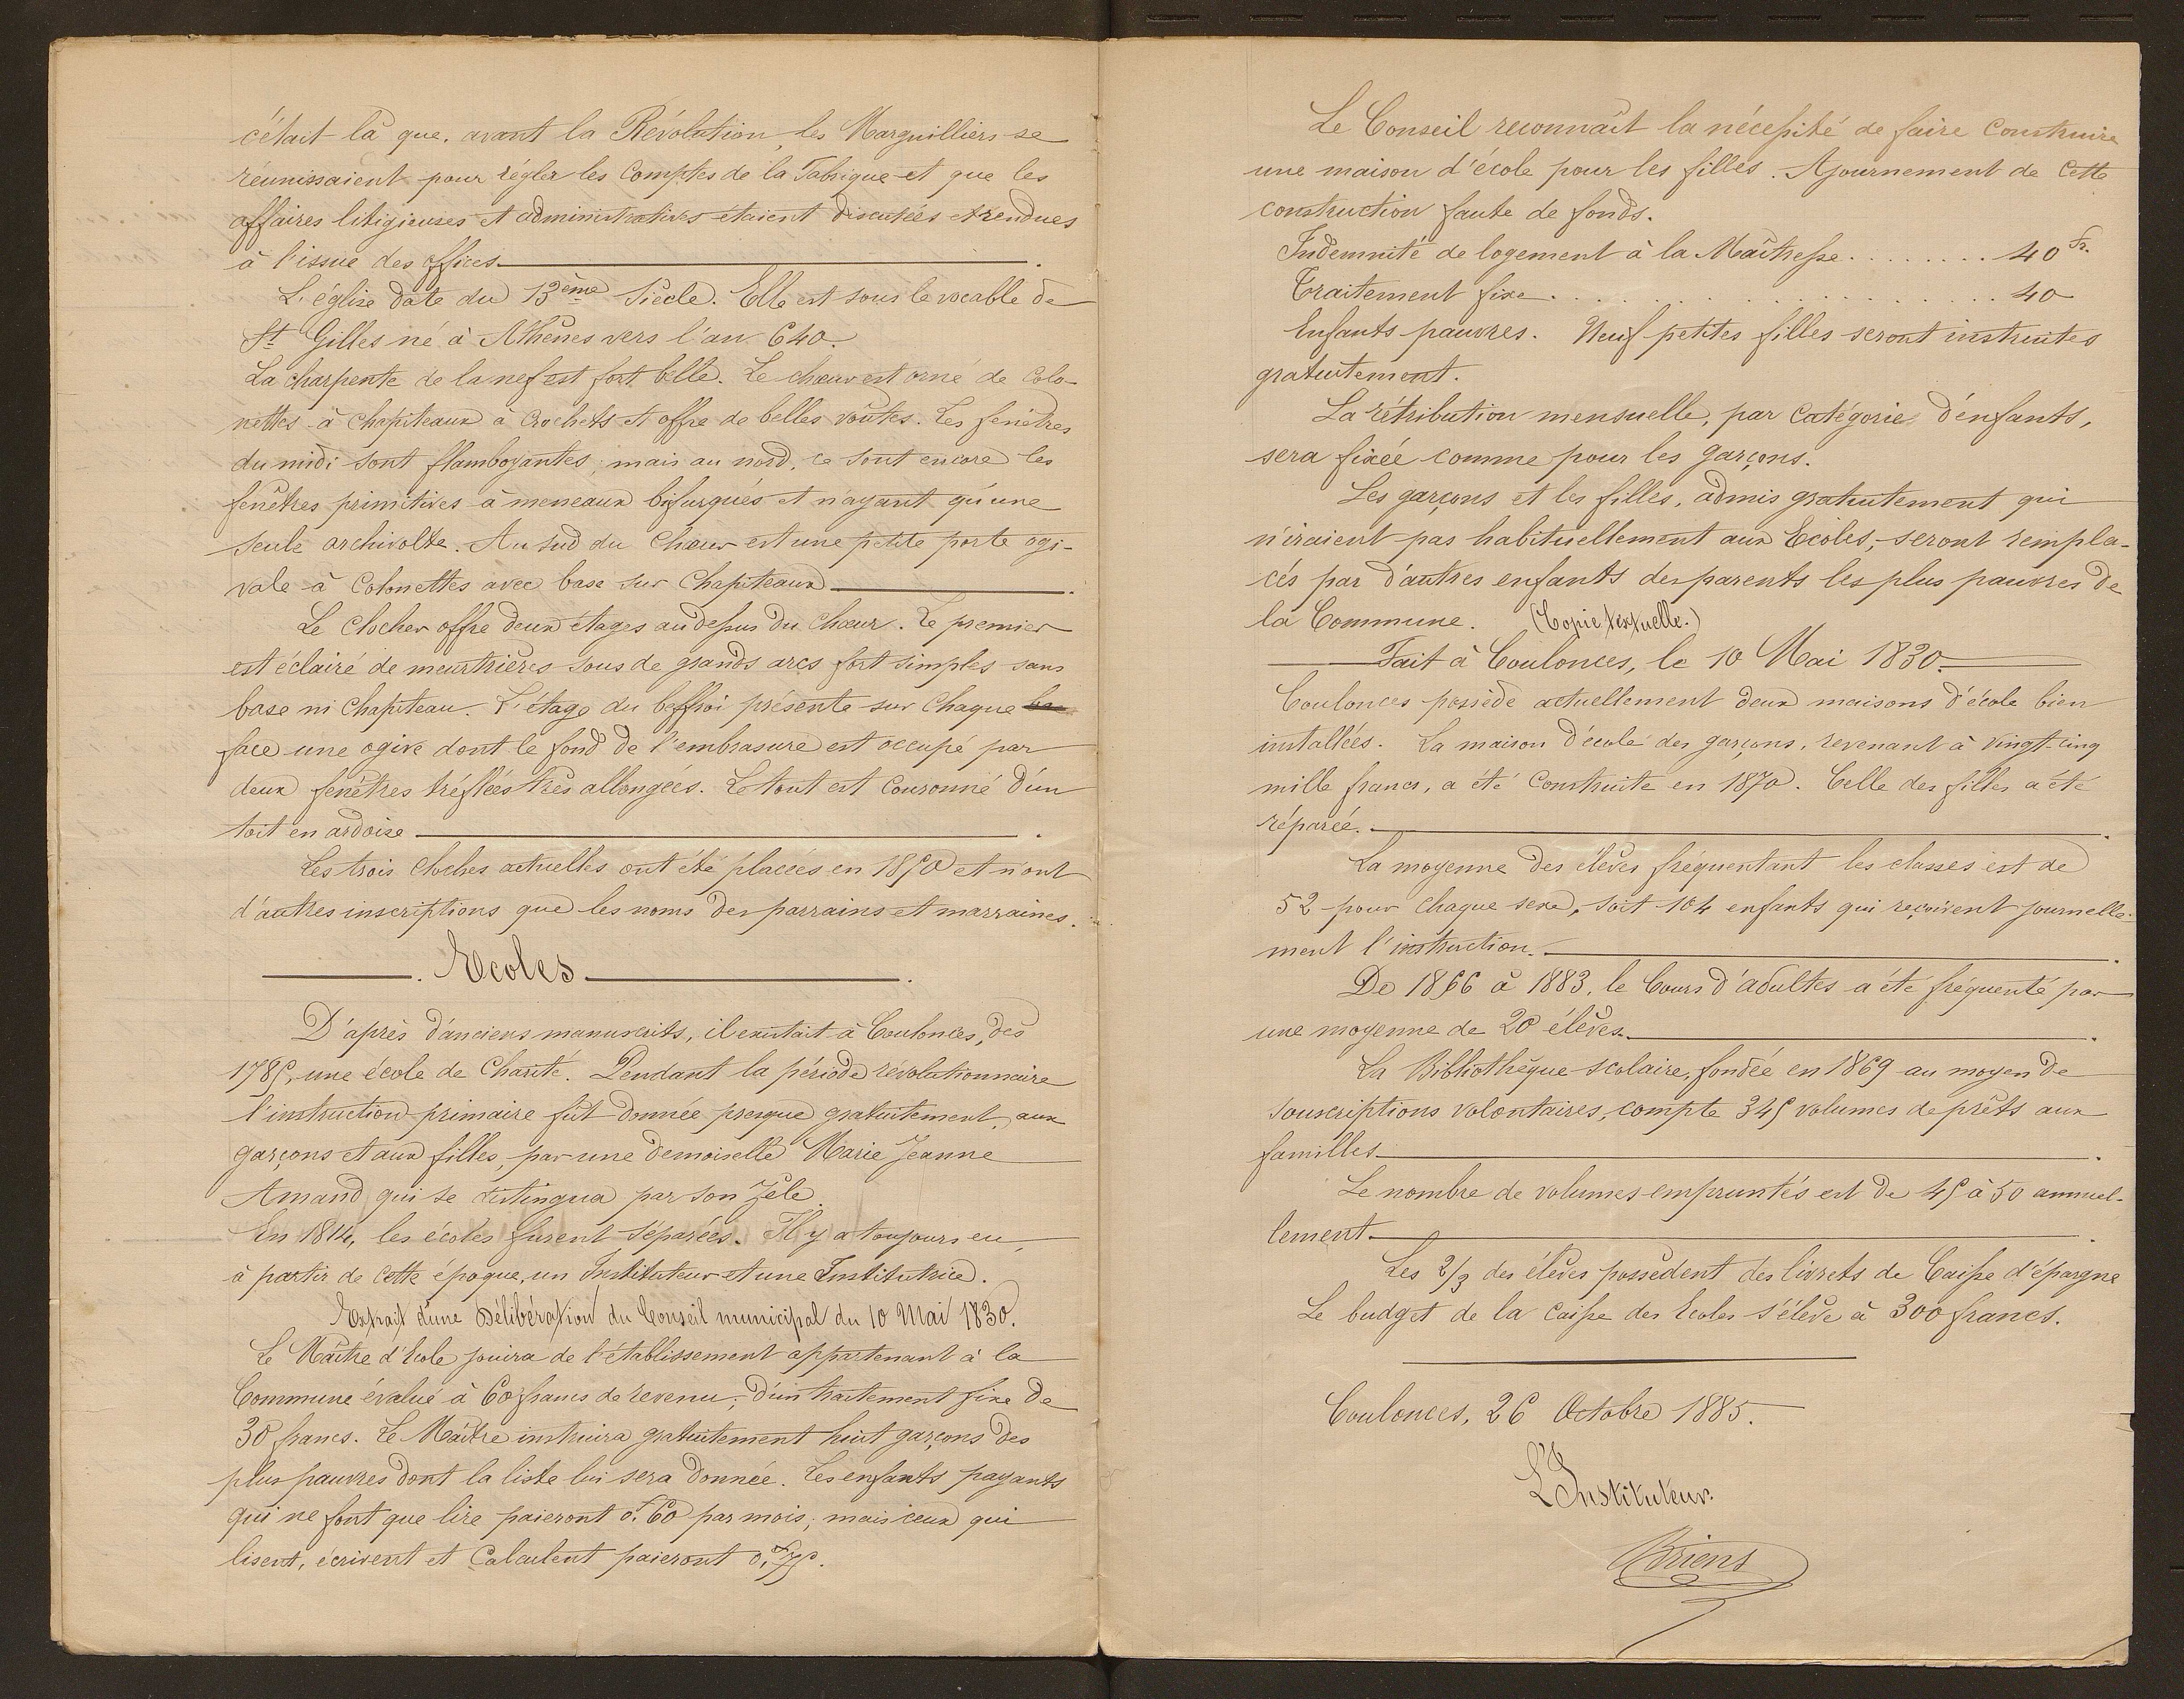 c'était là que, avant la Révolution, les Marguilliers se
réunissaient pour régler les Comptes de la Fabrique et que les
affaires litigieuses et administratives étaient discutées et rendues
à l'issue des offices.
L'église date du 13ème Siècle. Elle est sous le vocable de
St Gilles né à Athènes vers l'an 640.
La charpente de la nef est fort belle. Le chœur est orné de Colo-
nettes à Chapiteaux à Crochets et offre de belles voûtes. Les fenêtres
du midi sont flamboyantes, mais au nord, ce sont encore les
fenêtres primitives à meneaux bifurqués et n'ayant qu'une
seule archivolte. Au sud du Chœur est une petite porte ogi-
vale à Colonettes avec base sur Chapiteaux.
Le Clocher offre deux étages au dessus du Chœur. Le premier
est éclairé de meurtrières sous de grands arcs fort simples sans
base ni Chapiteau. L'étage du beffroi présente sur Chaque
face une ogive dont le fond de l'embrasure est occupé par
deux fenêtres tréflées très allongées. Le tout est Couronné d'un
toit en ardoise.
Les trois cloches actuelles ont été placées en 1850 et n'ont
d'autres inscriptions que les noms des parrains et marraines.
Ecoles
D'après d'anciens manuscrits, il existait à Coulonces, dès
1785, une école de Charité. Pendant la période révolutionnaire
l'instruction primaire fût donnée presque gratuitement, aux
garçons et aux filles, par une demoiselle Marie Jeanne
Amand qui se distingua par son zèle.
En 1814, les écoles furent séparées. Il y a toujours eu,
à partir de Cette époque, un Instituteur et une Institutrice.
Extrait d'une Délibération du Conseil municipal du 10 Mai 1830.
Le Maître d'Ecole jouira de l'établissement appartenant à la
Commune évalué à 60 francs de revenu; d'un traitement fixe de
30 francs. Le Maître instruira gratuitement huit garçons des
plus pauvres dont la liste lui sera donnée. Les enfants payants
qui ne font que lire paieront 0f.60 par mois; mais ceux qui
lisent, écrivent et Calculent paieront 0f.75.
Le Conseil reconnaît la nécessité de faire Construire
une maison d'école pour les filles. Ajournement de Cette
construction faute de fonds.
Indemnité de logement à la Maîtresse........ 40 Fr.
Traitement fixe...................... 40
Enfants pauvres. Neuf petites filles seront instruites
gratuitement.
La rétribution mensuelle, par Catégorie d'enfants,
sera fixée comme pour les garçons.
Les garçons et les filles, admis gratuitement qui
n'iraient pas habituellement aux Ecoles, seront rempla-
cés par d'autres enfants des parents les plus pauvres de
la Commune. (Copie textuelle.)
Fait à Coulonces, le 10 Mai 1830.
Coulonces possède actuellement deux maisons d'école bien
installées. La maison d'école des garçons, revenant à vingt-cinq
mille francs, a été Construite en 1870. Celle des filles a été
réparée.
La moyenne des élèves fréquentant les classes est de
52 pour Chaque sexe, soit 104 enfants qui reçoivent journelle-
ment l'instruction.
De 1866 à 1883, le Cours d'adultes a été fréquenté par
une moyenne de 20 élèves.
La Bibliothèque scolaire, fondée en 1869 au moyen de
souscriptions volontaires, compte 345 volumes de prêts aux
familles.
Le nombre de volumes empruntés est de 45 à 50 annuel-
lement.
Les 2/3 des élèves possèdent des livrets de Caisse d'épargne
Le budget de la Caisse des Ecoles s'élève à 300 francs.
Coulonces, 26 Octobre 1885.
L'Instituteur.
Briens